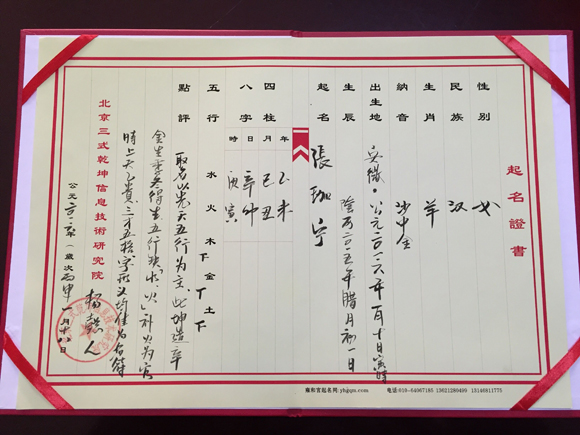 起名證書
性別 女
民族 汉
生肖 羊
納音 沙中金
出生地 安徽·公元二〇一六年一月十日寅時
生辰 陰历二〇一五年腊月初一日
起名 張珈宁
四柱 年 乙未
月 己丑
八字 辛卯
時 庚寅
五行 水火木金土
點評 取名以先天五行为主,此坤造辛
金生季冬得生五行缺水,以补火为宜
時上天乙贵三才五格字形义均佳為吉符
北京三式乾坤信息技術研究院
公元二〇一六年(歲次丙申)一月十八日
雍和宫起名网:yhgqm.com 电话:010-64067185 13621289499 13146811775